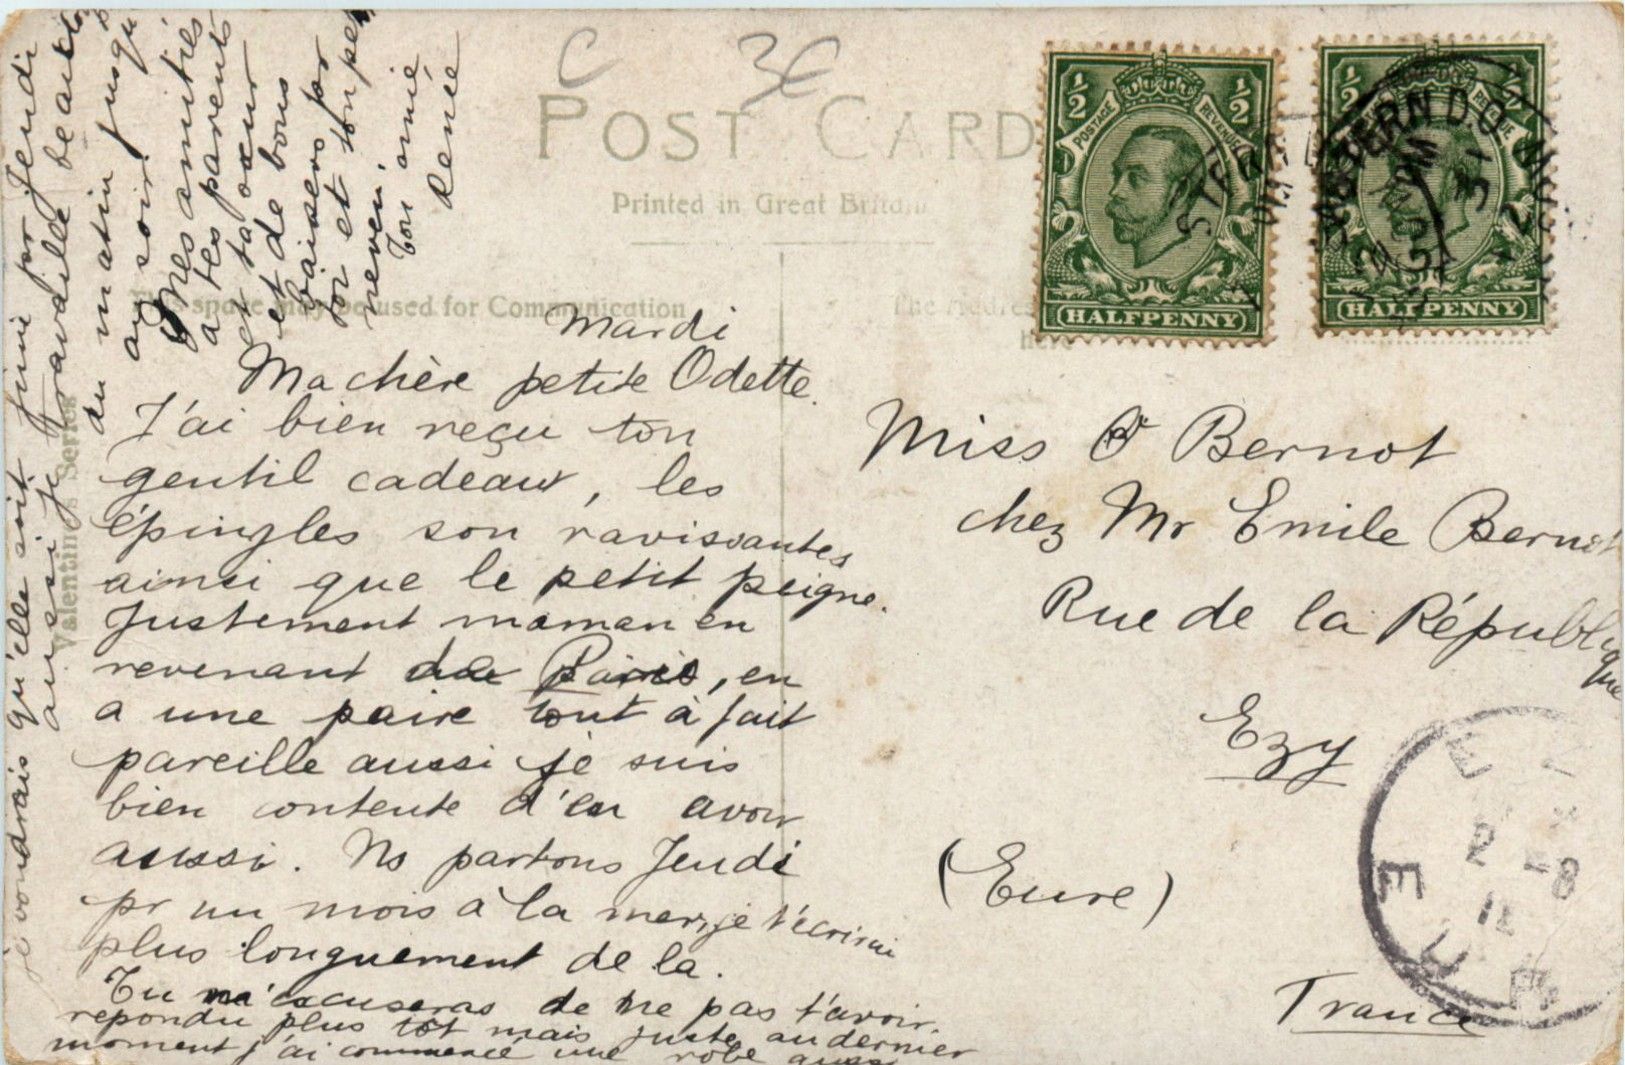 C 3C
POST CARD
Printed in Great Britain
This space may be used for Communication
The Address
here
Valentines Series
½ ½
POSTAGE REVENUE
HALFPENNY
½
HALFPENNY
MALVERN D.O
Mardi
Ma chère petite Odette.
J'ai bien reçu ton
gentil cadeau, les
épingles son ravissantes
ainsi que le petit peigne.
Justement maman en
revenant de Paris, en
a une paire tout à fait
pareille aussi je suis
bien contente d'en avoir
aussi. Ns partons Jeudi
pr un mois à la mer, je t'écrirai
plus longuement de la.
Tu m'excuseras de ne pas t'avoir
repondu plus tôt mais juste au dernier
moment j'ai commencé une robe aussi
je voudrais qu'elle soit finie pr Jeudi
aussi je travaille beaucoup
du matin jusqu'
au soir.
Mes amitiés
a tes parents
et ta sœur
et de bons
baisers pr
toi et ton petit
neveu.
Ton amie
Renée
Miss O Bernot
chez Mr Emile Bernot
Rue de la République
Ezy
(Eure)
France
EURE